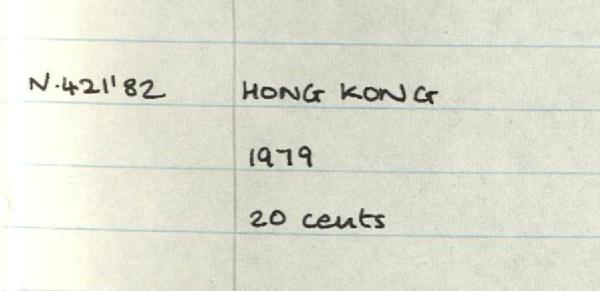 N.421'82 HONG KONG
1979
20 cents